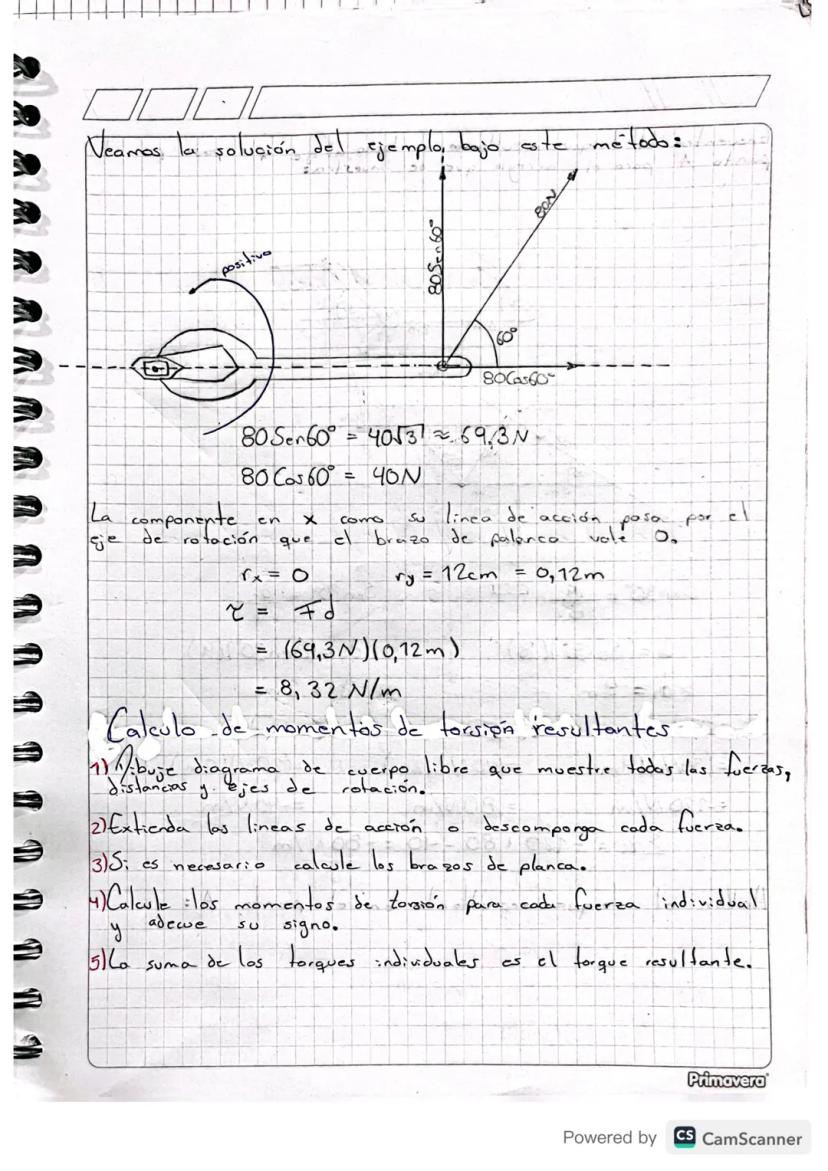 Veamos la solución del ejemplo bajo este método:
80N
80Sen60°
positivo
60°
80Cos60°
80Sen60° = 40√3 ≈ 69,3N
80Cos60° = 40N
La componente en x como su linea de acción pasa por el
eje de rotación que el brazo de palanca vale 0.
rx = 0 ry = 12cm = 0,12m
τ = Fd
= (69,3N)(0,12m)
= 8,32 N/m
Calculo de momentos de torsión resultantes
1) Dibuje diagrama de cuerpo libre que muestre todas las fuerzas,
distancias y ejes de rotación.
2) Extienda las lineas de acción o descomponga cada fuerza.
3) Si es necesario calcule los brazos de planca.
4) Calcule los momentos de torsión para cada fuerza individual
y adecue su signo.
5) La suma de los torques individuales es el torque resultante.
Primavera
Powered by CS CamScanner